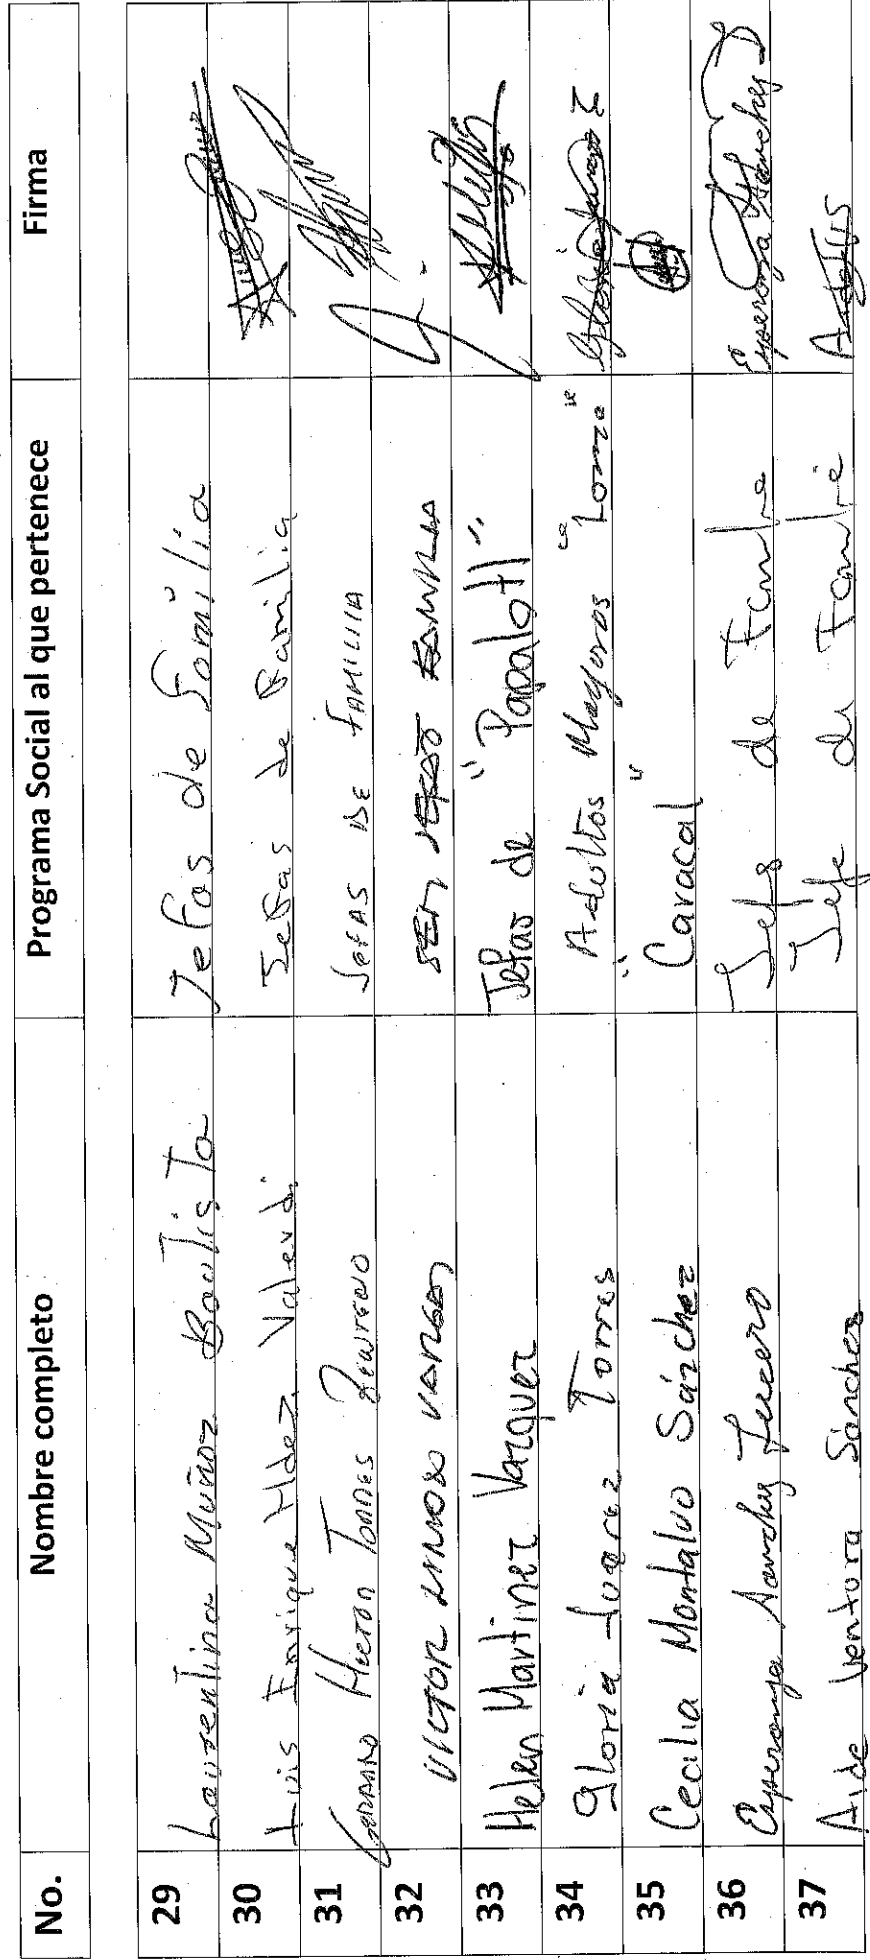 No. Nombre completo Programa Social al que pertenece Firma
29 Laurentina Muñoz Bautista Jefas de Familia
30 Luis Enrique Hdez. Valerdi Jefas de Familia
31 Gerardo Hector Torres Jefas de Familia
32 Victor Vargas
33 Helen Martinez Vazquez Jefas de "Papalotl"
34 Gloria Juarez Torres Adultos Mayores "Loma" Gloria Juarez
35 Cecilia Montalvo Sánchez "Caracol"
36 Esperanza Sanchez Lucero Jefs de Familia Esperanza Sanchez
37 Aide Ventura Sánchez Jefe de Familia